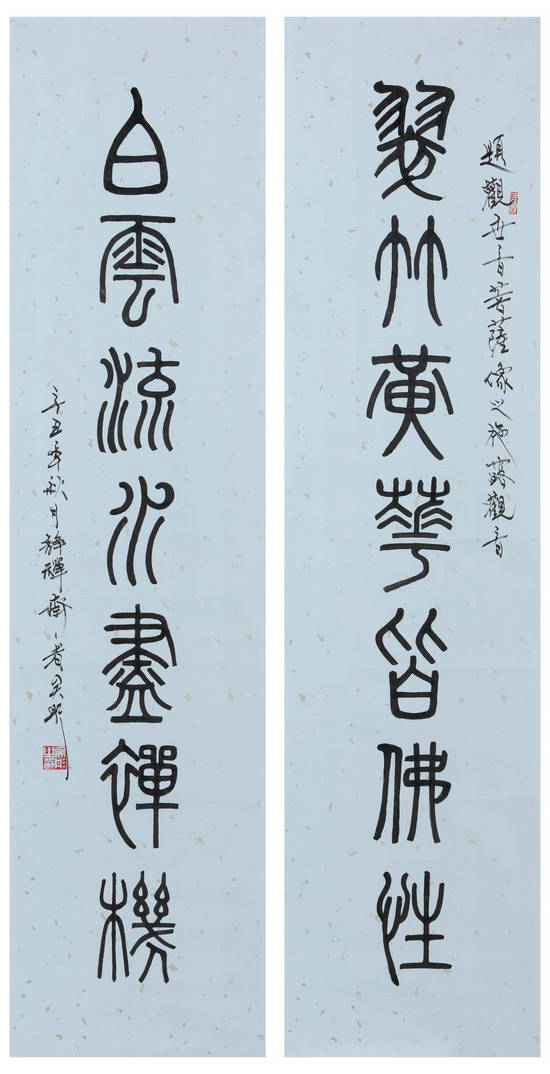 題觀世音菩薩像之施藥觀音
翠竹黃華皆佛性
白雲流水盡禪機
辛丑年秋月靜禪齋